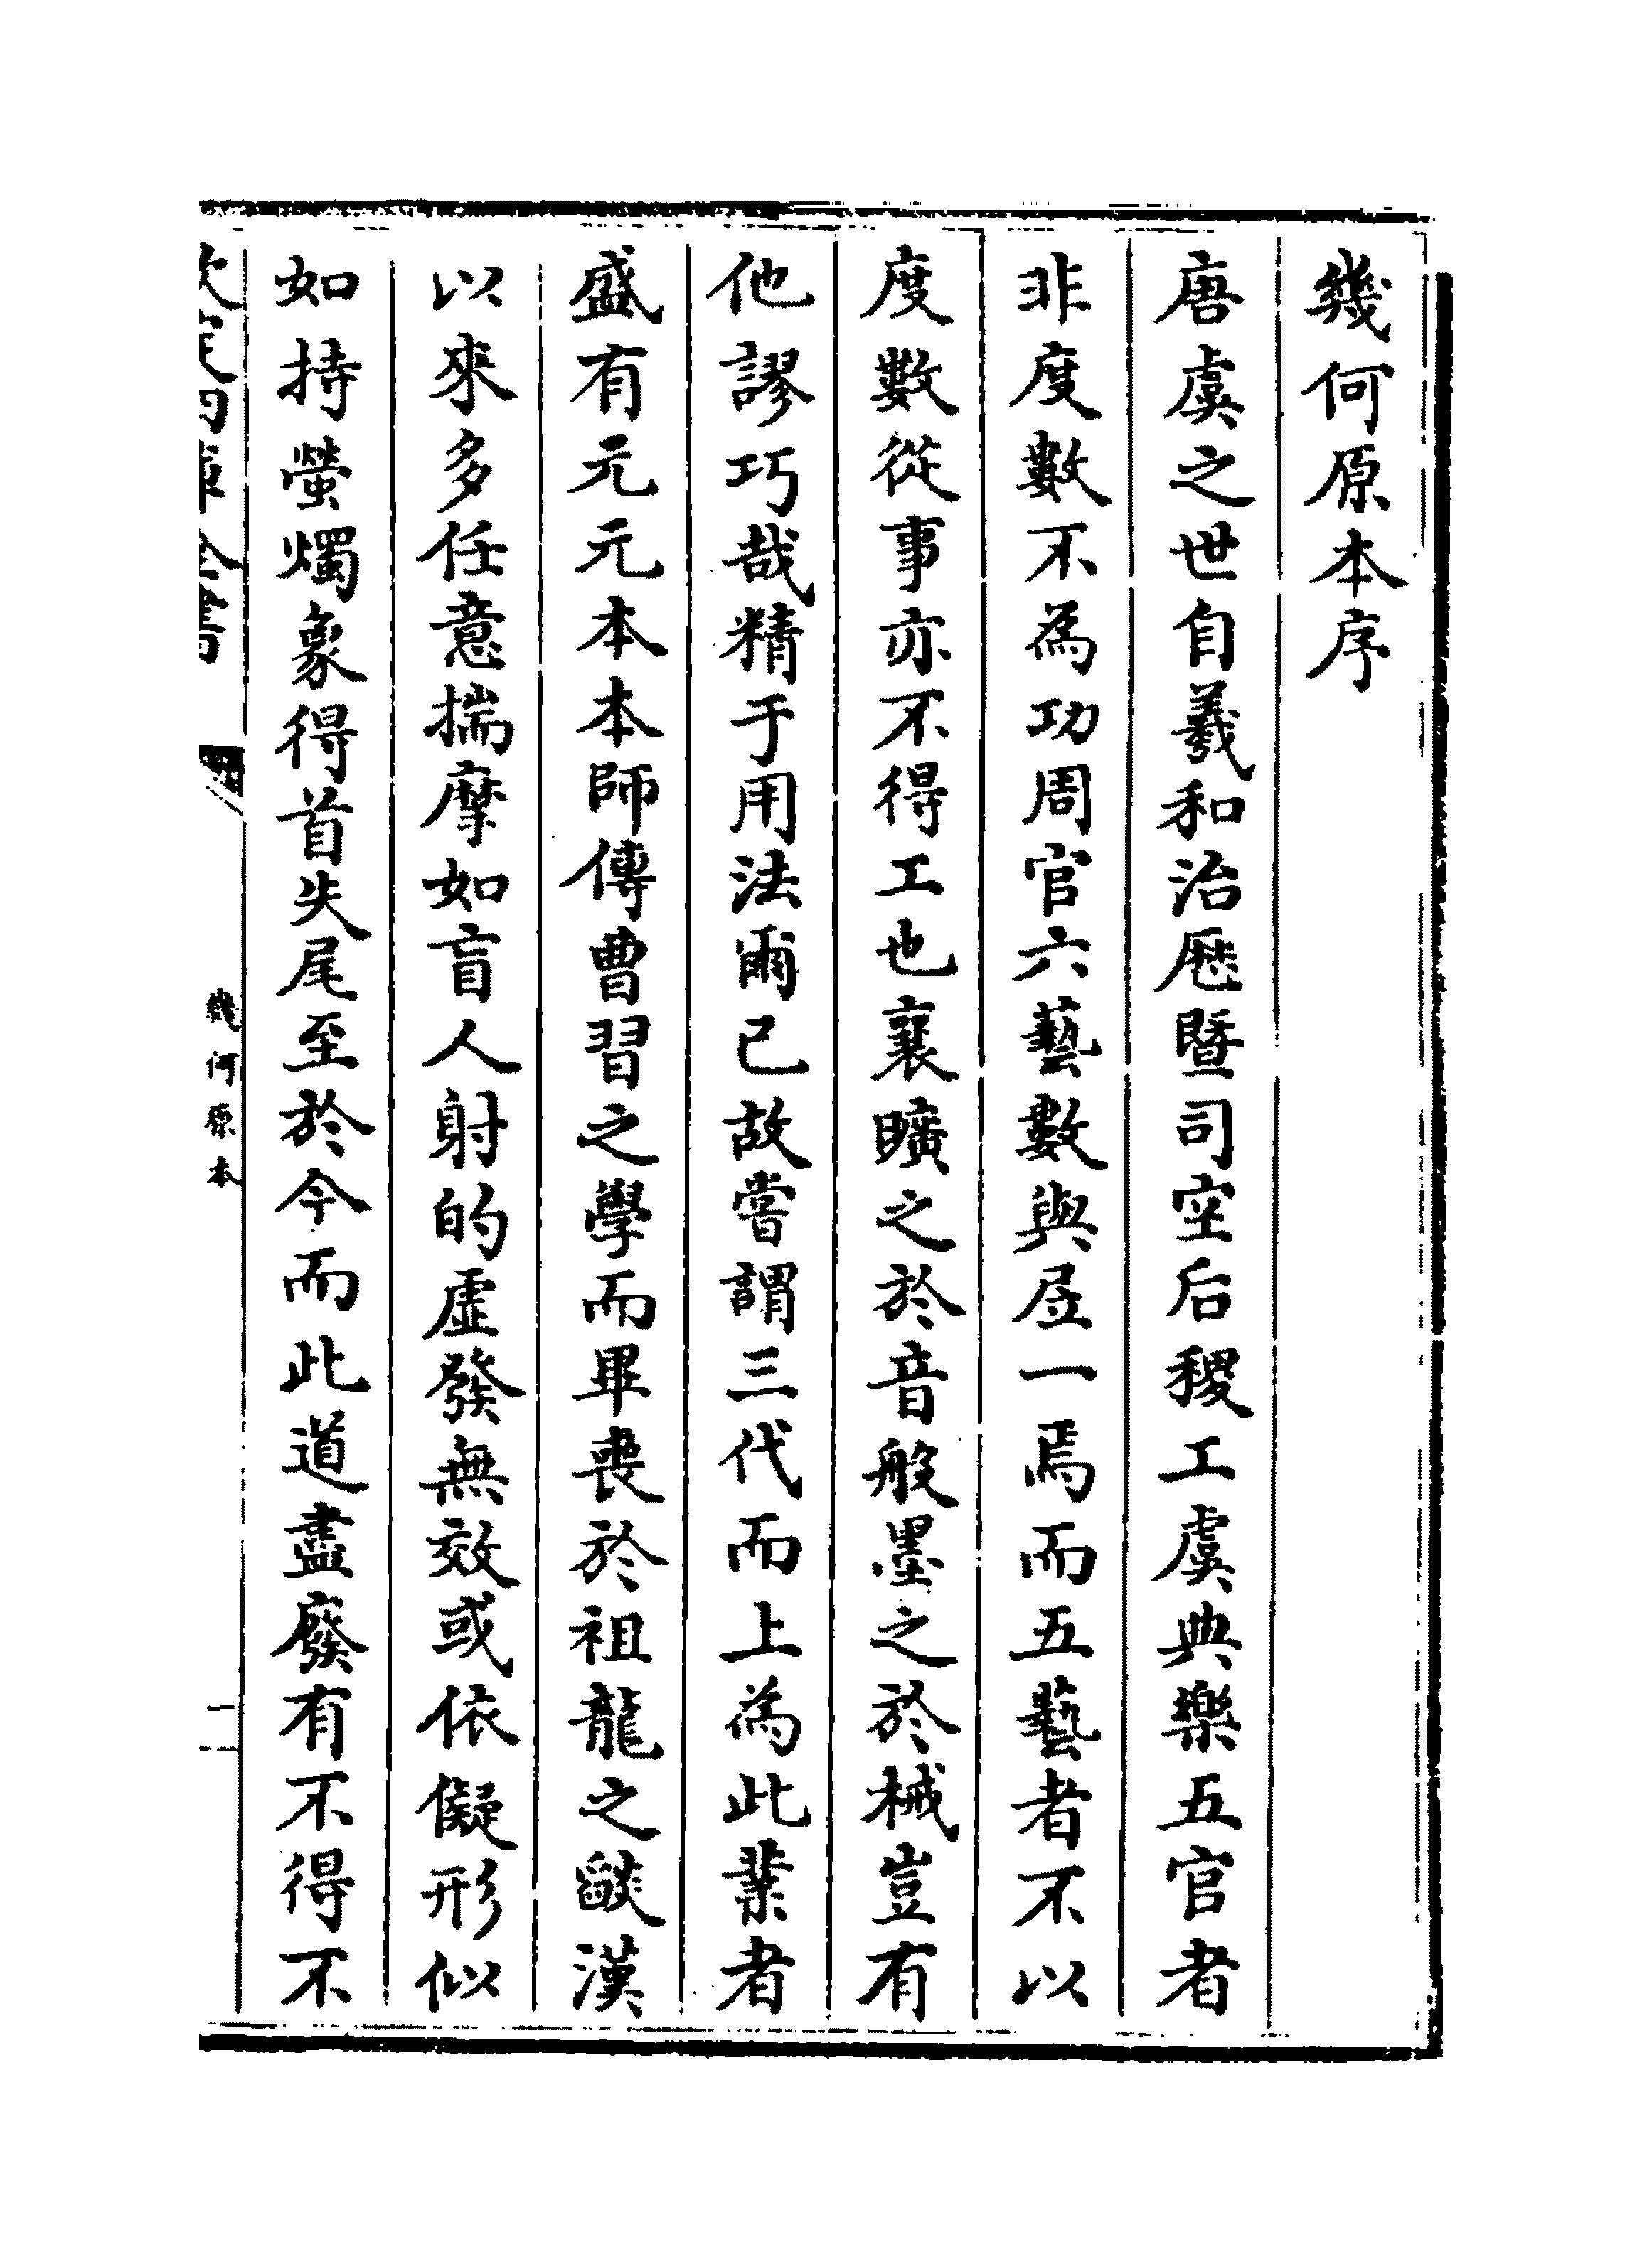 幾何原本序
唐虞之世自羲和治厯暨司空后稷工虞典樂五官者
非度數不為功周官六藝數與居一焉而五藝者不以
度數從事亦不得工也襄曠之於音般墨之於械豈有
他謬巧哉精于用法爾已故嘗謂三代而上為此業者
盛有元元本本師傳曹習之學而畢喪於祖龍之燄漢
以來多任意揣摩如盲人射的虛發無效或依儗形似
如持螢燭象得首失尾至於今而此道盡廢有不得不
欽定四庫全書
幾何原本
一